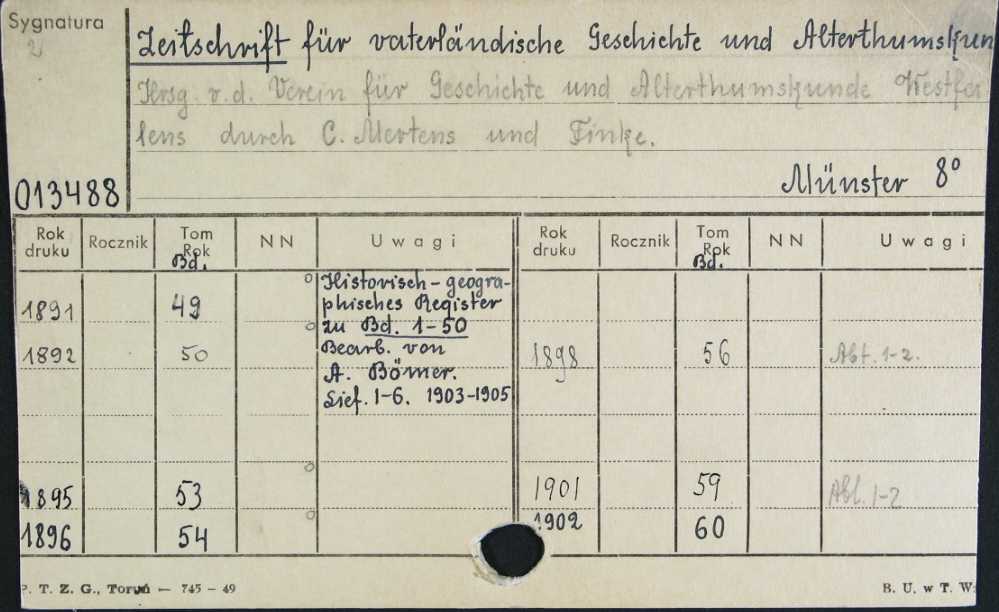 Sygnatura
Zeitschrift für vaterländische Geschichte und Alterthumskun
Hrsg. v. d. Verein für Geschichte und Alterthumskunde Westfa
lens durch C. Mertens und Finke.
013488
Münster 8°
Rok druku Rocznik Tom Rok Bd. NN Uwagi Rok druku Rocznik Tom Rok Bd. NN Uwagi
Historisch-geogra-
1891 49 phisches Register
zu Bd. 1-50
1892 50 Bearb. von 1898 56 Abt. 1-2.
A. Bömer.
Lief. 1-6. 1903-1905
1895 53 1901 59 Abt. 1-2
1896 54 1902 60
P. T. Z. G., Toruń — 745 - 49 B. U. w T. W